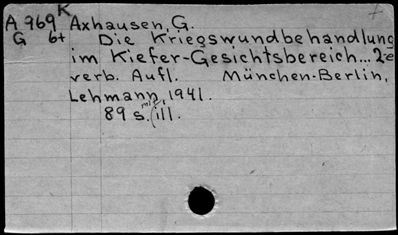 K
A 969 Axhausen, G.
G 6t Die Kriegswundbehandlung
im Kiefer-Gesichtsbereich... 2e
verb. Aufl. München-Berlin,
Lehmann, 1941.
89 s. mit ill.